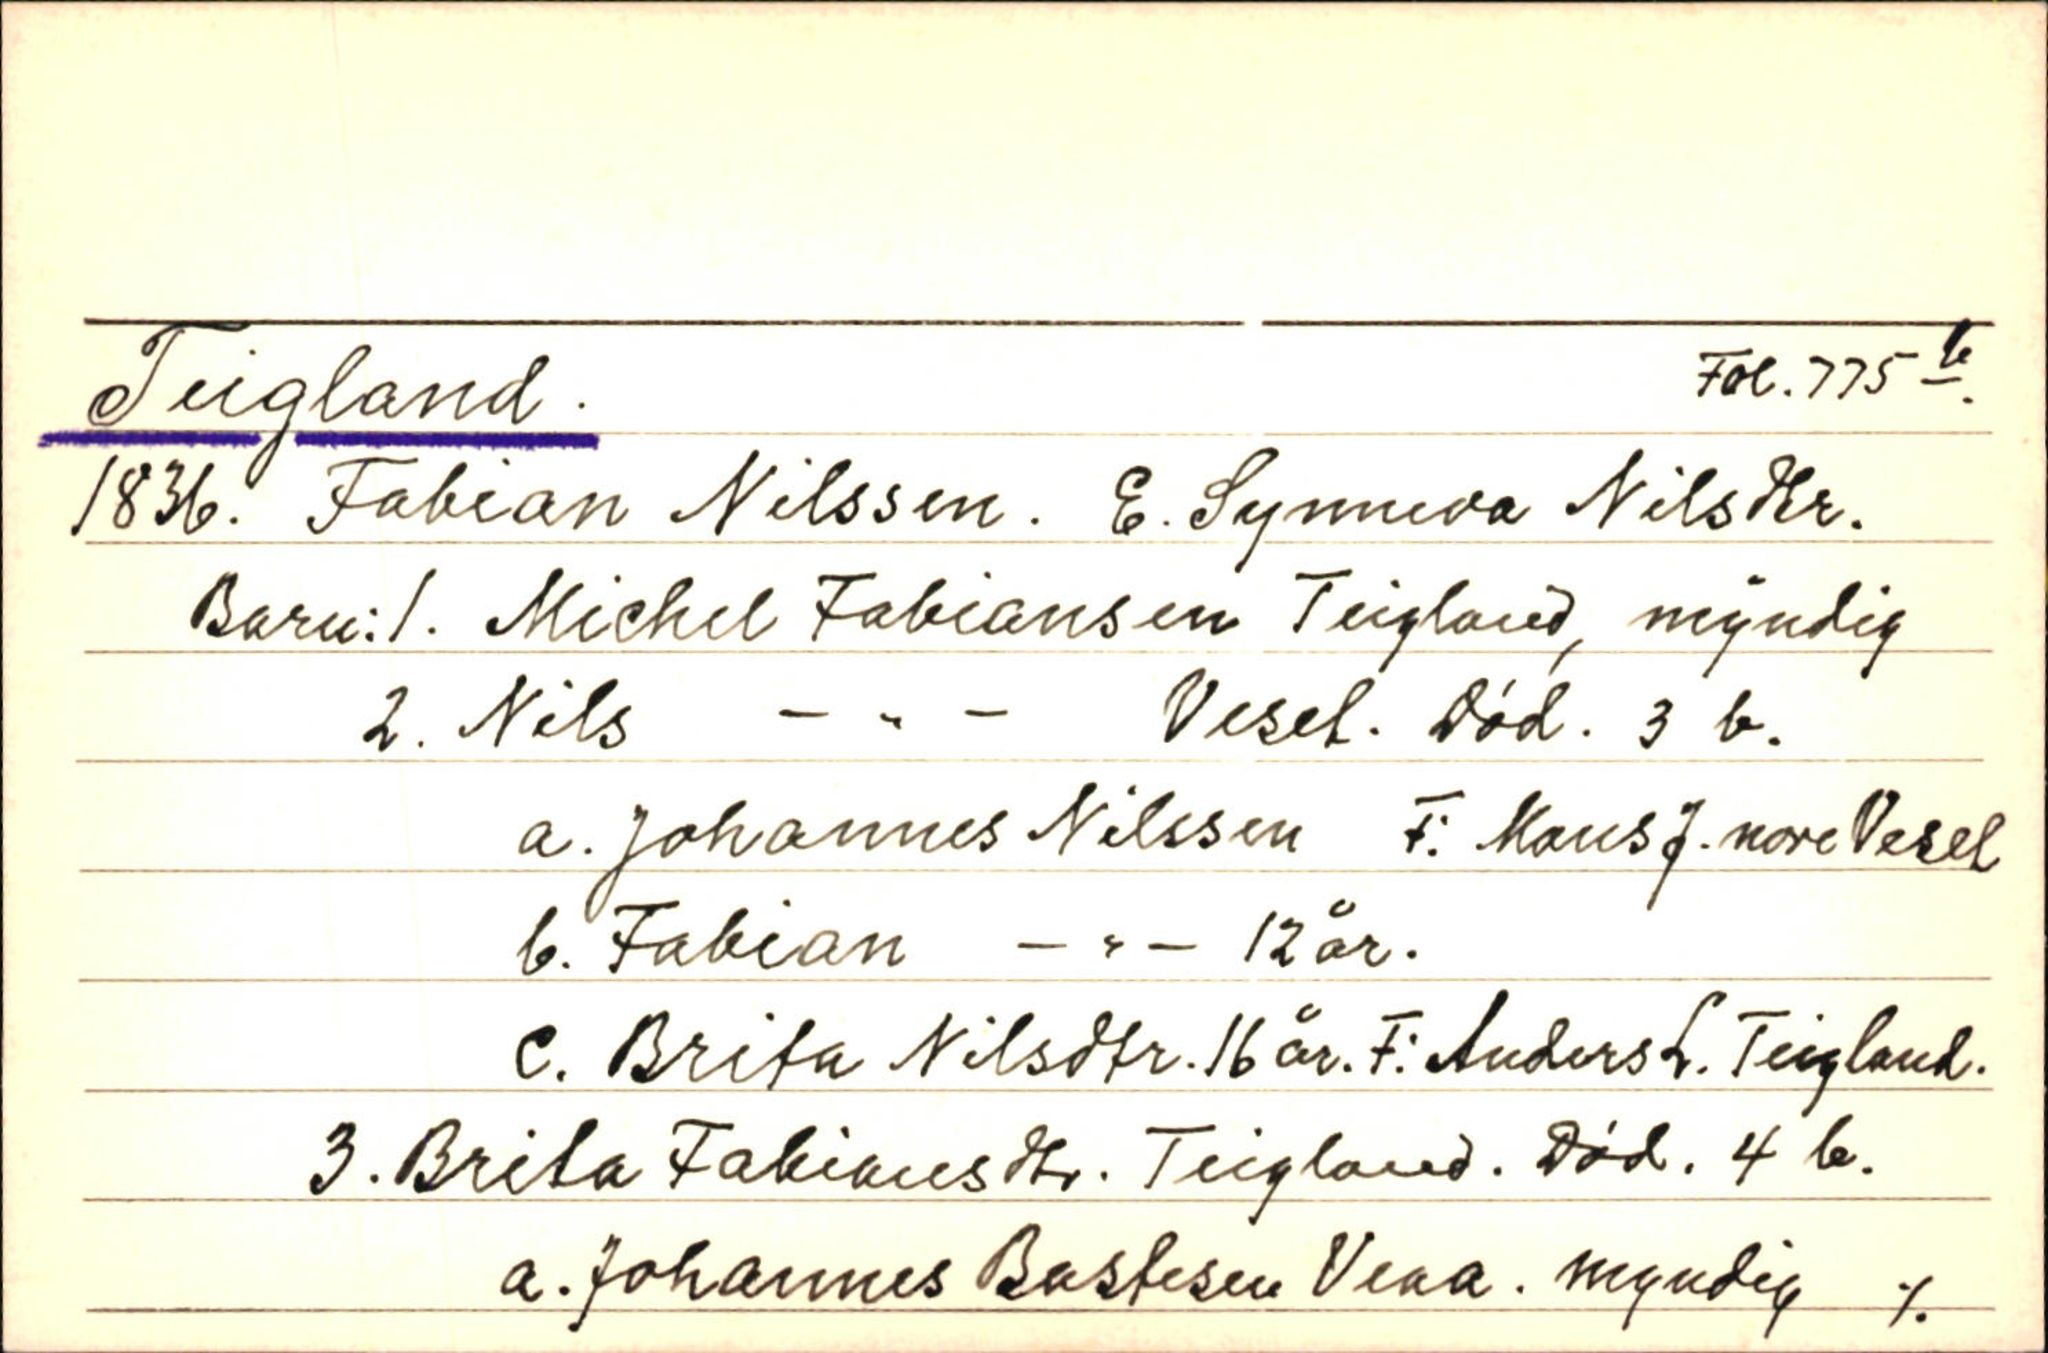 Teigland. Fol. 775 b.
1836. Fabian Nilssen. E. Synneva Nilsdtr.
Barn: 1. Michel Fabiansen Teigland, myndig
2. Nils - " - Vesel. Död. 3 b.
a. Johannes Nilssen F: Mons J. nore Vesel
b. Fabian - " - 12 år.
c. Brita Nilsdtr. 16 år. F: Anders L. Teigland.
3. Brita Fabiansdtr. Teigland. Död. 4 b.
a. Johannes Bastesen Veaa. myndig ⁒